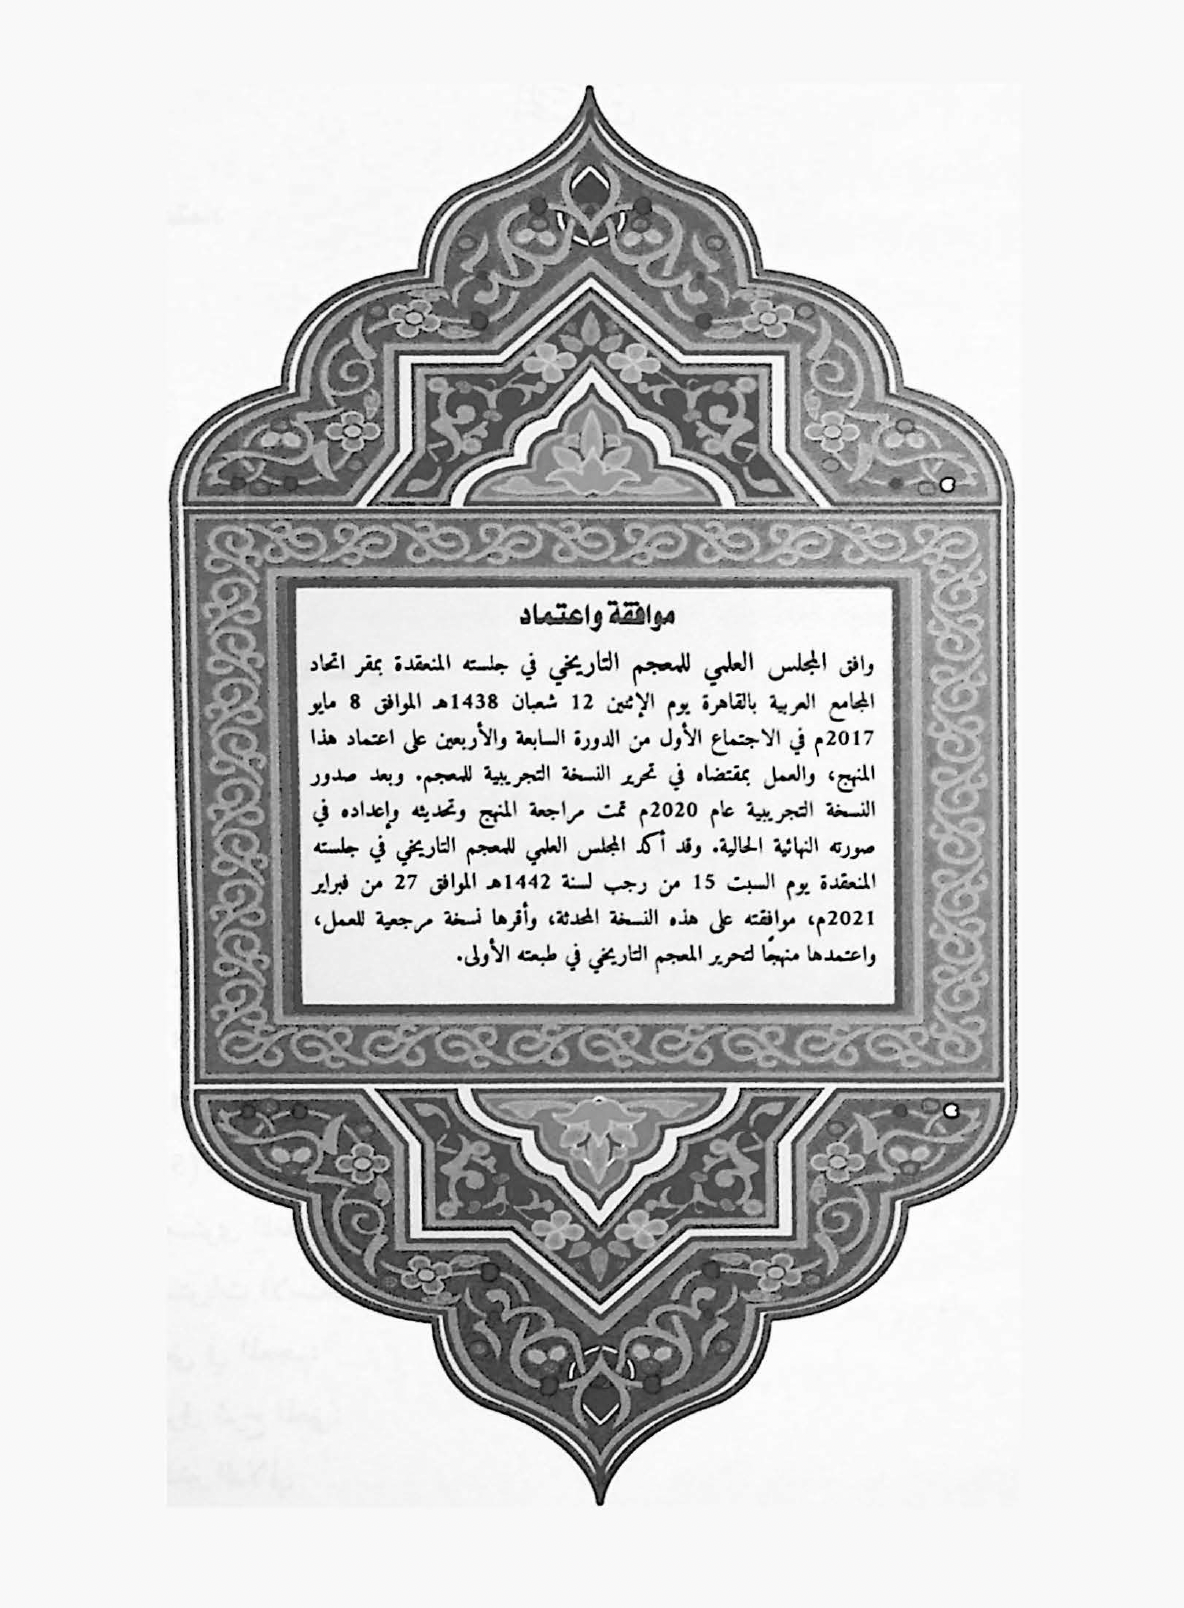 موافقة واعتماد
وافق المجلس العلمي للمعجم التاريخي في جلسته المنعقدة بمقر اتحاد
المجامع العربية بالقاهرة يوم الإثنين 12 شعبان 1438هـ الموافق 8 مايو
2017م في الاجتماع الأول من الدورة السابعة والأربعين على اعتماد هذا
المنهج، والعمل بمقتضاه في تحرير النسخة التجريبية للمعجم. وبعد صدور
النسخة التجريبية عام 2020م تمت مراجعة المنهج وتحديثه وإعداده في
صورته النهائية الحالية. وقد أكد المجلس العلمي للمعجم التاريخي في جلسته
المنعقدة يوم السبت 15 من رجب لسنة 1442هـ الموافق 27 من فبراير
2021م، موافقته على هذه النسخة المحدثة، وأقرها نسخة مرجعية للعمل،
واعتمدها منهجًا لتحرير المعجم التاريخي في طبعته الأولى.